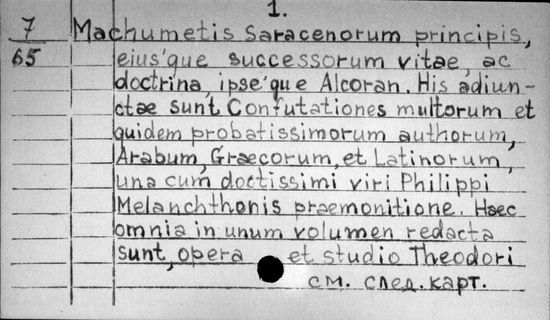 1.
7
65
Machumetis Saracenorum principis,
eius'que successorum vitae, ac
doctrina, ipse'que Alcoran. His adiun-
ctae sunt Confutationes multorum et
quidem probatissimorum authorum,
Arabum, Graecorum, et Latinorum,
una cum doctissimi viri Philippi
Melanchthonis praemonitione. Haec
omnia in unum volumen redacta
sunt, opera et studio Theodori
см. след. карт.